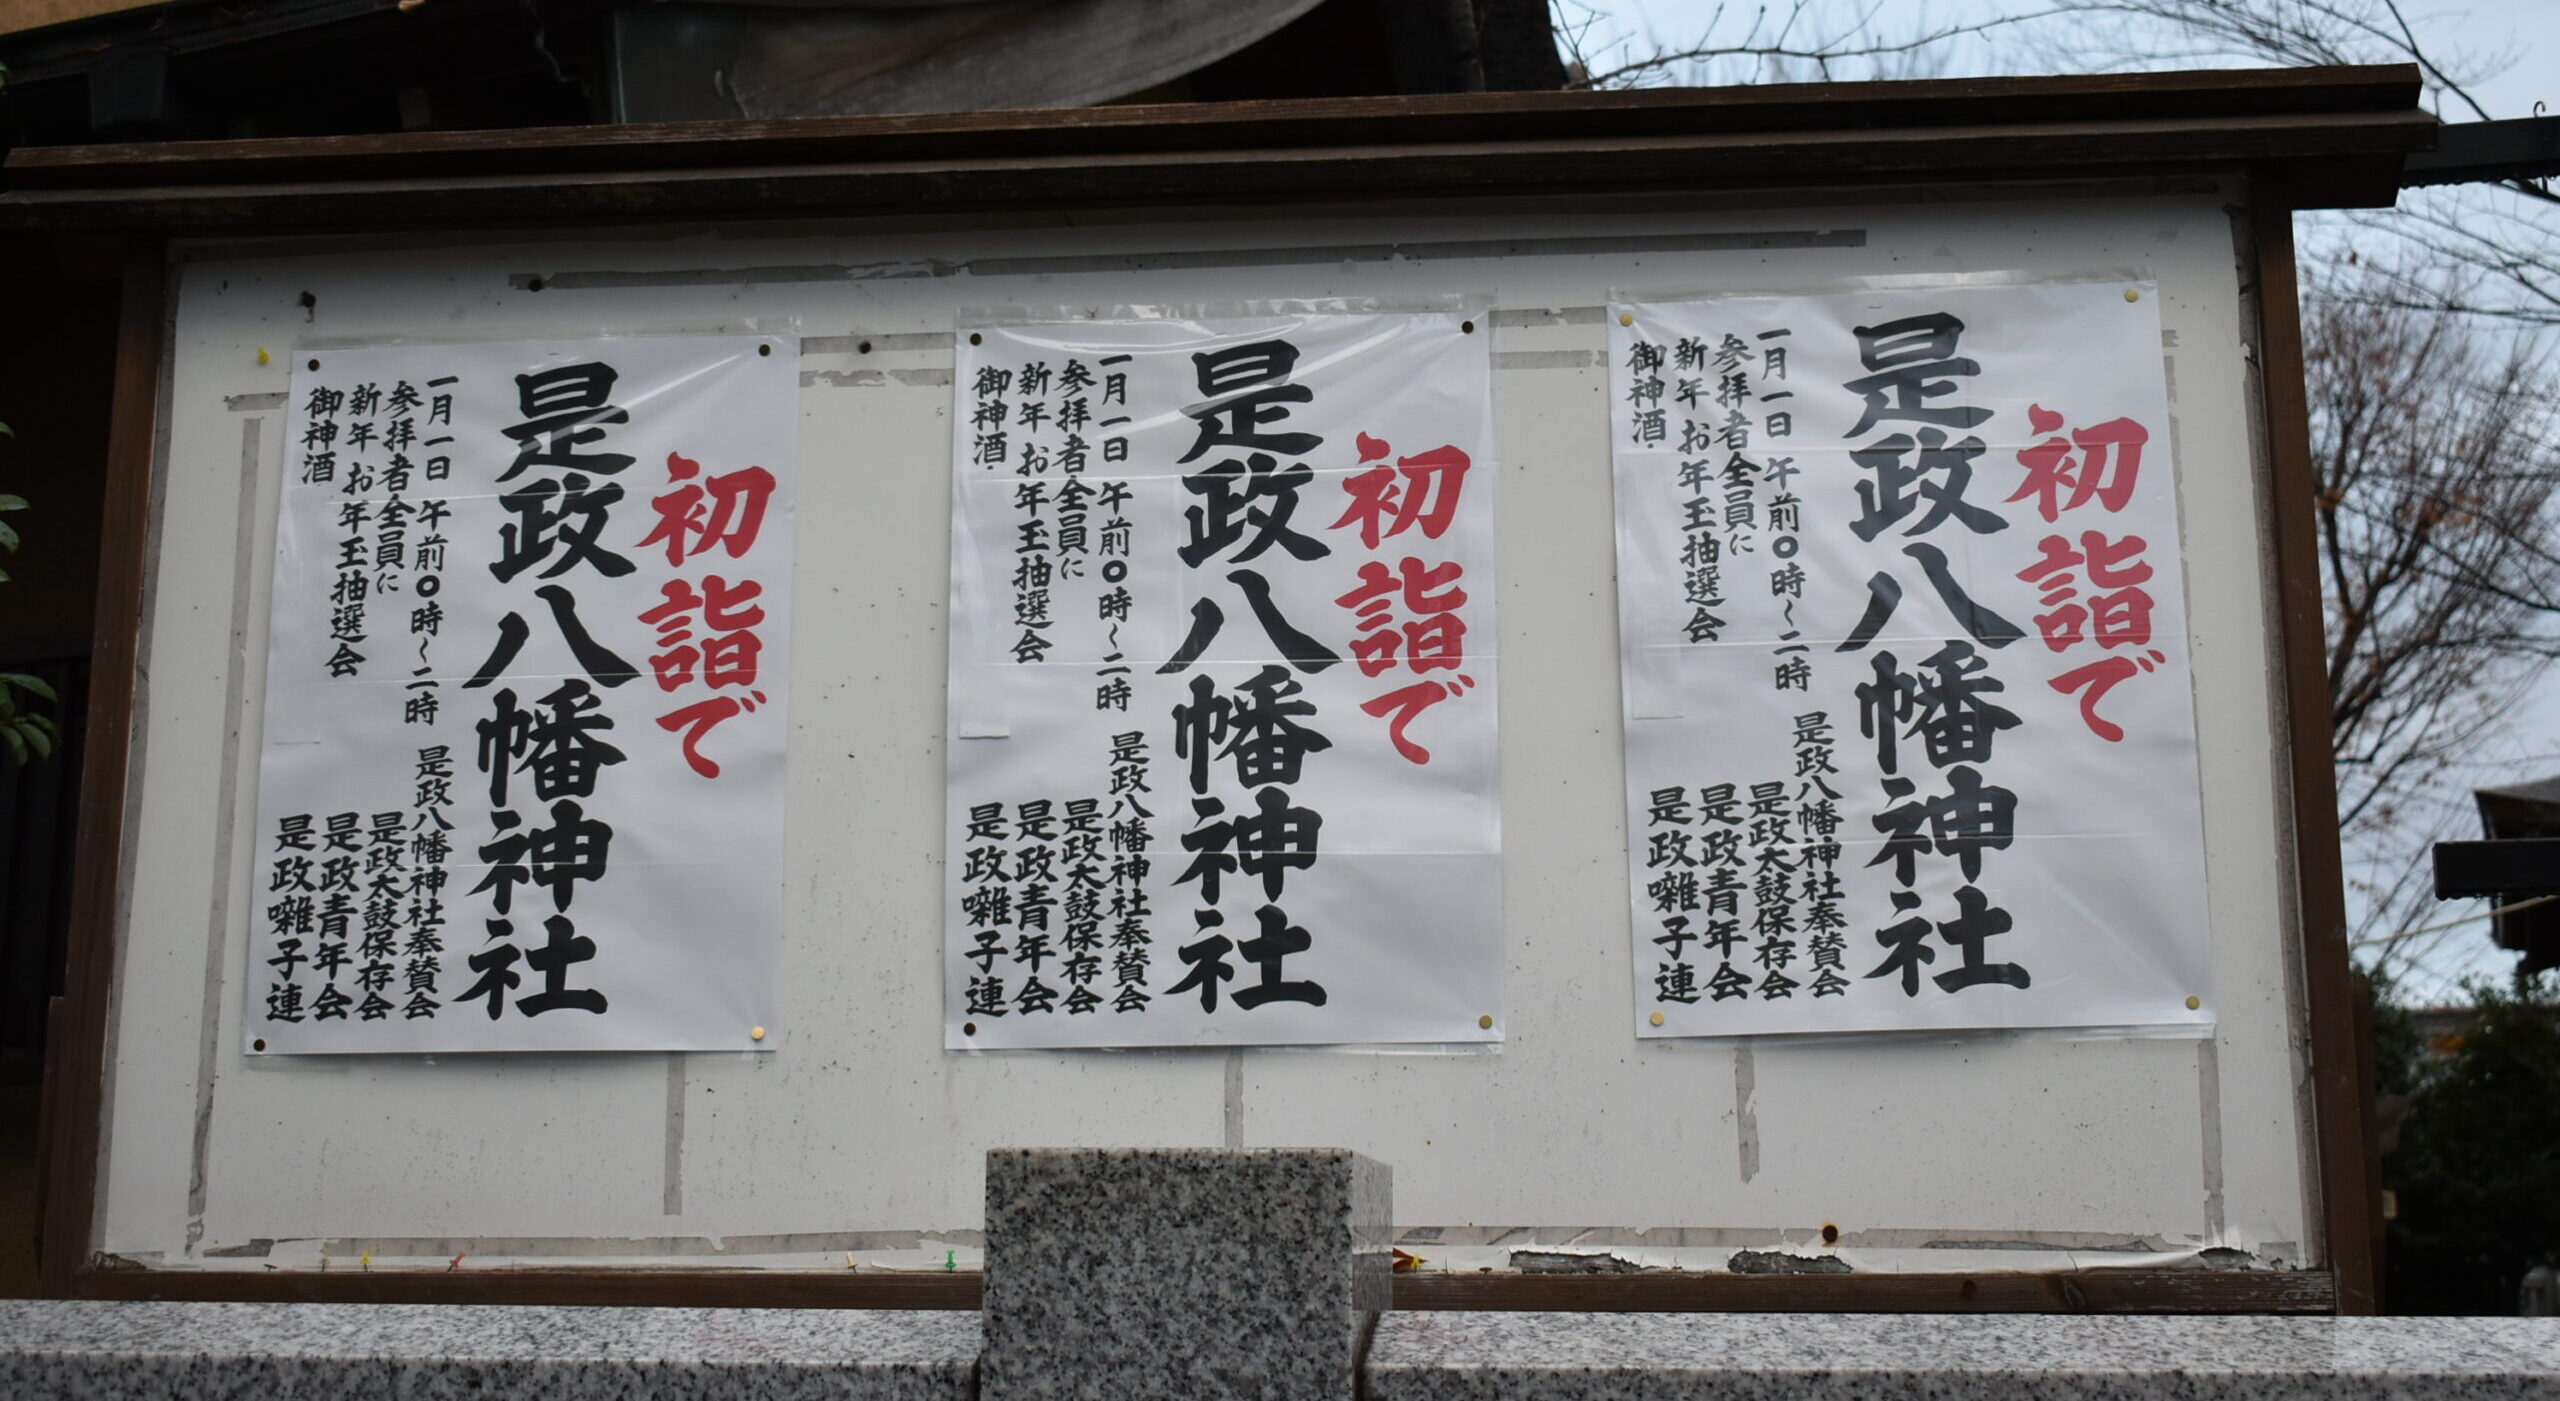 初詣で
是政八幡神社
一月一日 午前〇時～二時
参拝者全員に
新年お年玉抽選会
御神酒
是政八幡神社奉賛会
是政太鼓保存会
是政青年会
是政囃子連
初詣で
是政八幡神社
一月一日 午前〇時～二時
参拝者全員に
新年お年玉抽選会
御神酒
是政八幡神社奉賛会
是政太鼓保存会
是政青年会
是政囃子連
初詣で
是政八幡神社
一月一日 午前〇時～二時
参拝者全員に
新年お年玉抽選会
御神酒
是政八幡神社奉賛会
是政太鼓保存会
是政青年会
是政囃子連